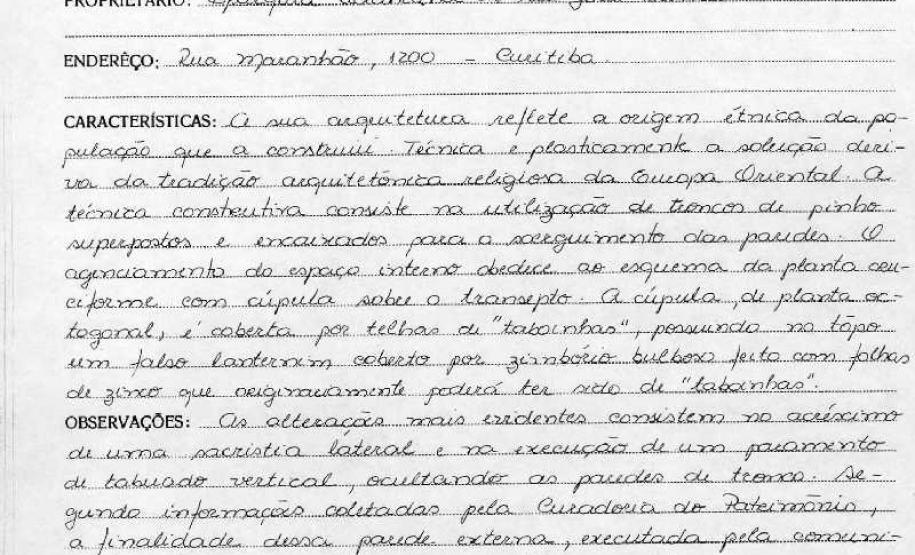 PROPRIETÁRIO:
ENDERÊÇO: Rua Maranhão, 1200 - Curitiba.
CARACTERÍSTICAS: A sua arquitetura reflete a origem étnica da po-
pulação que a construiu. Técnica e plasticamente a solução deri-
va da tradição arquitetônica religiosa da Europa Oriental. A
técnica construtiva consiste na utilização de troncos de pinho
superpostos e encaixados para o soerguimento das paredes. O
agenciamento do espaço interno obedece ao esquema da planta cru-
ciforme com cúpula sobre o transepto. A cúpula, de planta oc-
togonal, é coberta por telhas de "taboinhas", possuindo no tôpo
um falso lanternim coberto por zimbório bulboso feito com folhas
de zinco que originariamente poderá ter sido de "taboinhas".
OBSERVAÇÕES: As alterações mais evidentes consistem no acréscimo
de uma sacristia lateral e na execução de um paramento
de tabuado vertical, ocultando as paredes de tronco. Se-
gundo informações coletadas pela Curadoria do Patrimônio,
a finalidade dessa parede externa, executada pela comuni-